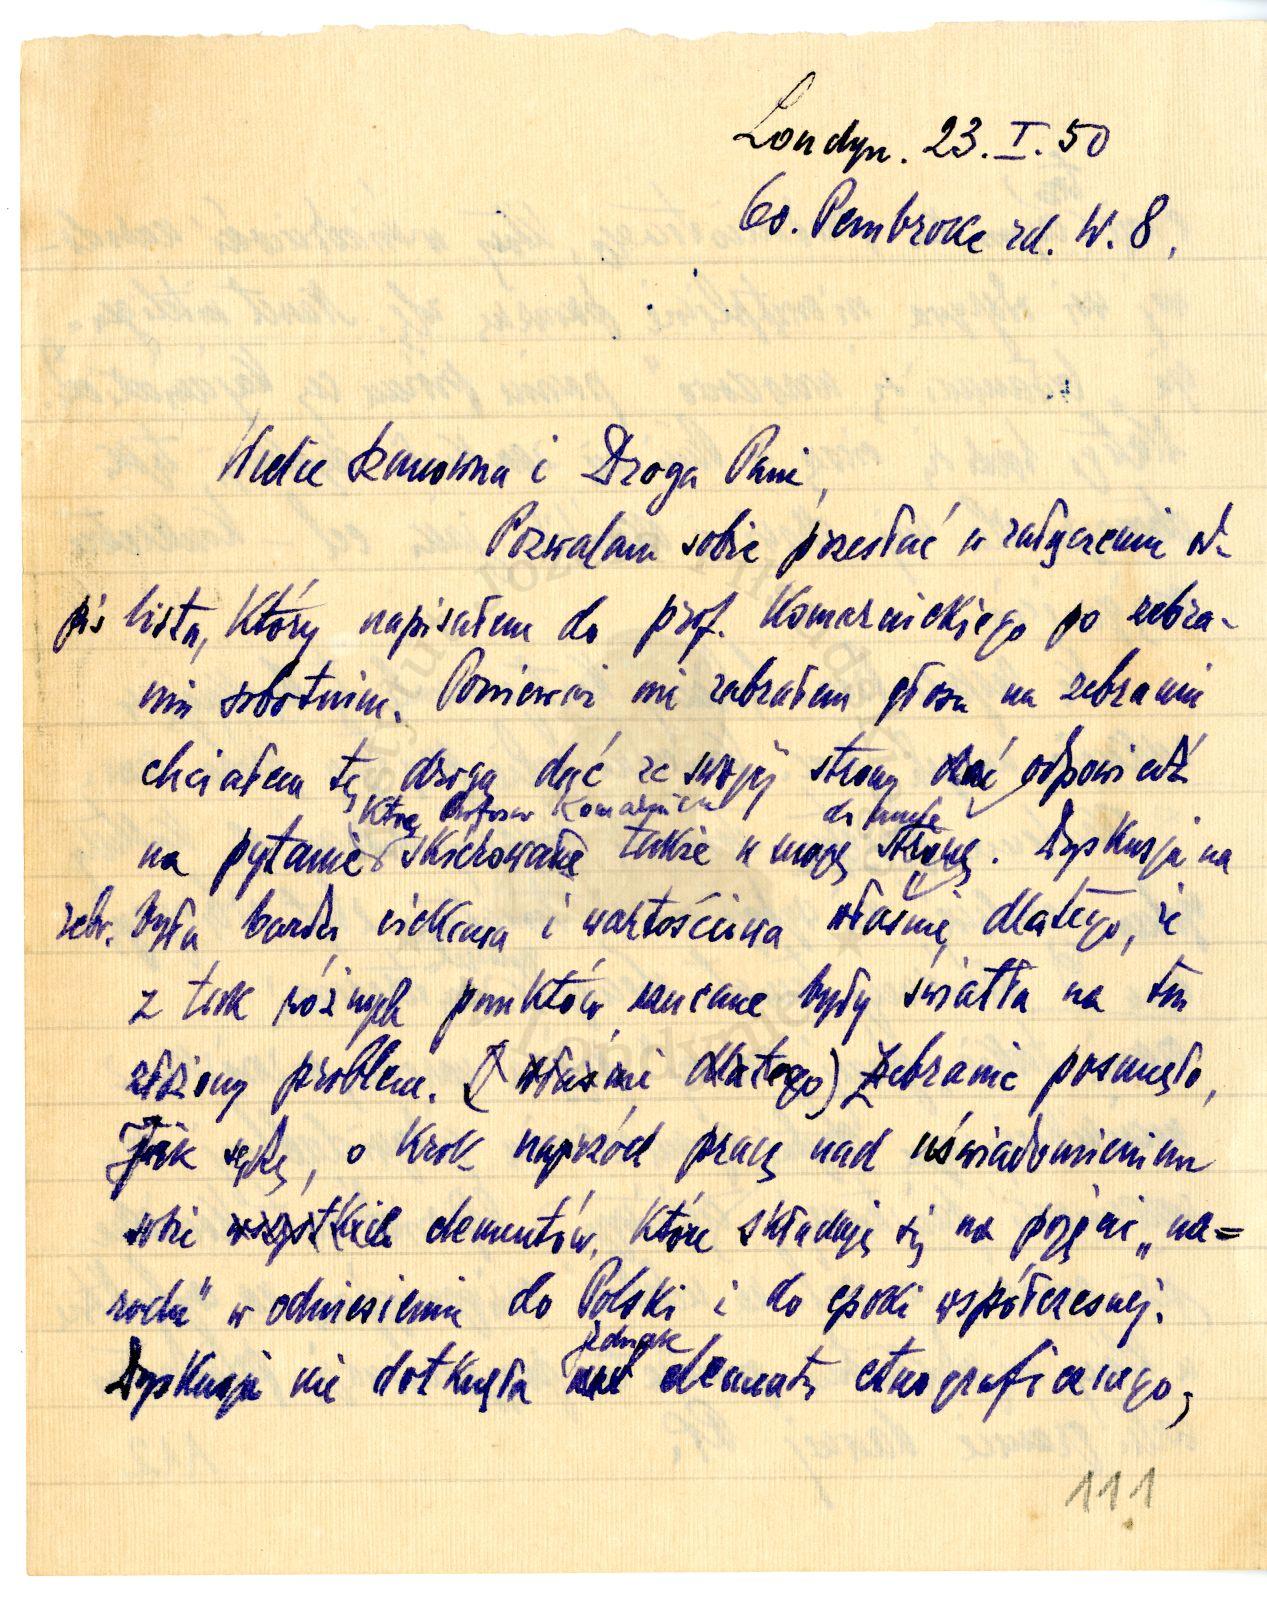 Londyn. 23.I.50
60. Pembroke rd. W.8.
Wielce Szanowna i Droga Pani,
Pozwalam sobie przesłać w załączeniu od-
pis listu, który napisałem do prof. Komarnickiego po zebra-
niu sobotnim. Ponieważ nie zabrałem głosu na zebraniu
chciałem tą drogą dać ze swojej strony dać odpowiedź
którą profesor Komarnicki do mnie
na pytanie skierowane także w moją stronę. Dyskusja na
zebr. była bardzo ciekawa i wartościowa właśnie dlatego, że
z tak różnych punktów rzucane były światła na ten
złożony problem. (właśnie dlatego) Zebranie posunęło,
Jak sądzę, o krok naprzód pracę nad uświadomieniem
sobie wszystkich elementów, które składają się na pojęcie „na=
rodu" w odniesieniu do Polski i do epoki współczesnej.
jednak
Dyskusja nie dotknęła elementu etnograficznego,
111